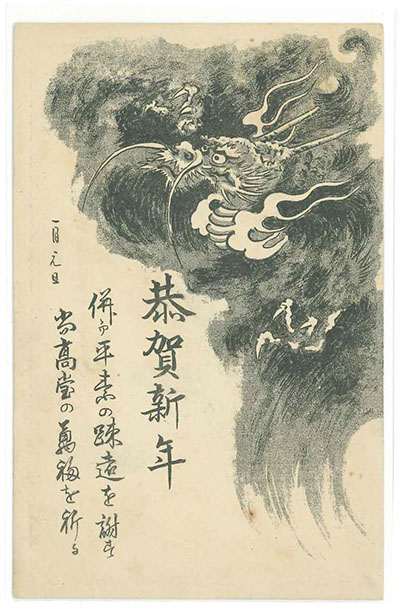 恭賀新年
併而平素の疎遠を謝し
尚高堂の萬福を祈る
一月元旦